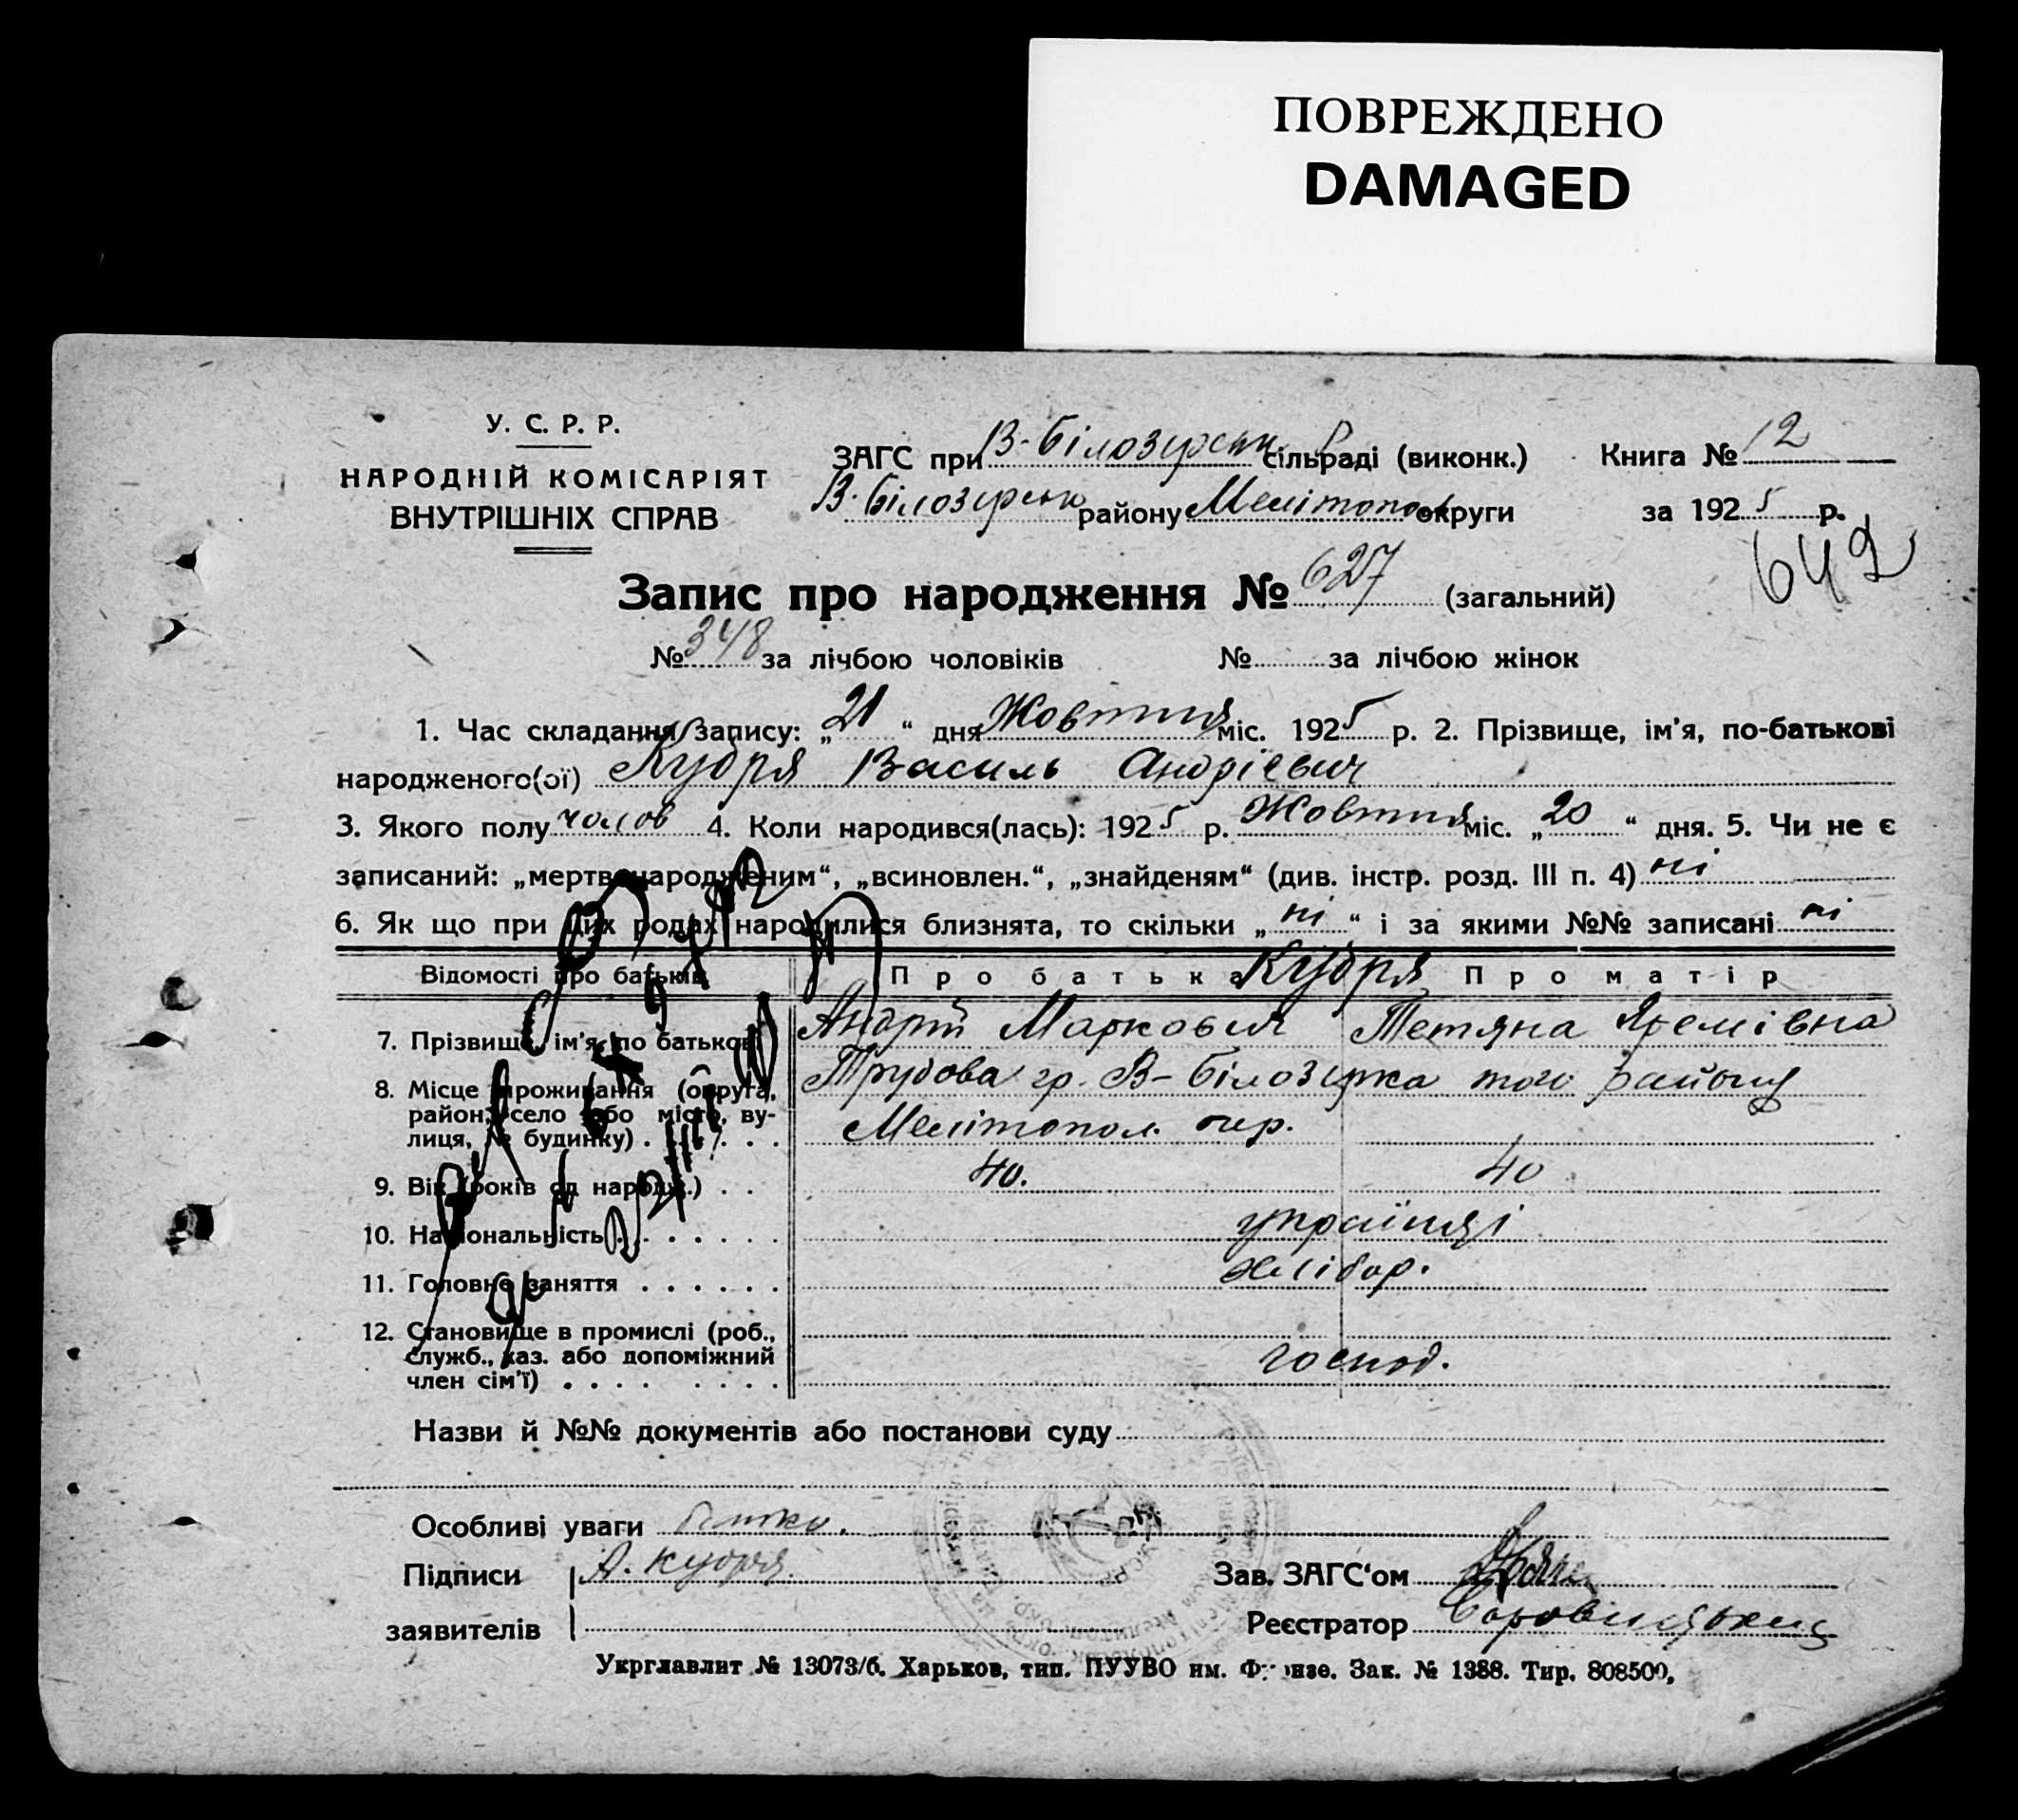 ПОВРЕЖДЕНО
DAMAGED
У. С. Р. Р.
НАРОДНІЙ КОМІСАРІЯТ
ВНУТРІШНІХ СПРАВ
ЗАГС при В-Білозерськ сільраді (виконк.) Книга № 12
В. Білозерськ району Мелітопол округи за 1925 р.
642
Запис про народження № 627 (загальний)
№ 348 за лічбою чоловіків № за лічбою жінок
1. Час складання запису: „21“ дня Жовтня міс. 1925 р. 2. Прізвище, ім'я, по-батькові
народженого(ої) Кудря Василь Андрієвич
3. Якого полу чолов 4. Коли народився(лась): 1925 р. Жовтня міс. „20“ дня. 5. Чи не є
записаний: „мертвонародженим“, „всиновлен.“, „знайденям“ (див. інстр. розд. III п. 4) ні
6. Як що при цих родах народилися близнята, то скільки „ні“ і за якими №№ записані ні
Відомості про батьків Про батька Кудря Про матір
7. Прізвище, ім'я, по батькові Андрій Маркович Тетяна Яремівна
8. Місце проживання (округа, Трудова гр. В-Білозирка того району
район, село або місто, ву-
лиця, № будинку) . . . . . . Мелітопол. окр.
9. Вік (років од народж.) . . 40. 40
10. Національність . . . . . . . українці
11. Головне заняття . . . . . . хлібор.
12. Становище в промислі (роб.,
служб., хаз. або допоміжний господ.
член сім'ї) . . . . . . . .
Назви й №№ документів або постанови суду
Особливі уваги
Підписи А. Кудря Зав. ЗАГС'ом
заявителів Реєстратор
Укрглавлит № 13073/б. Харьков, тип. ПУУВО им. Фрунзе. Зак. № 1388. Тир. 808500,